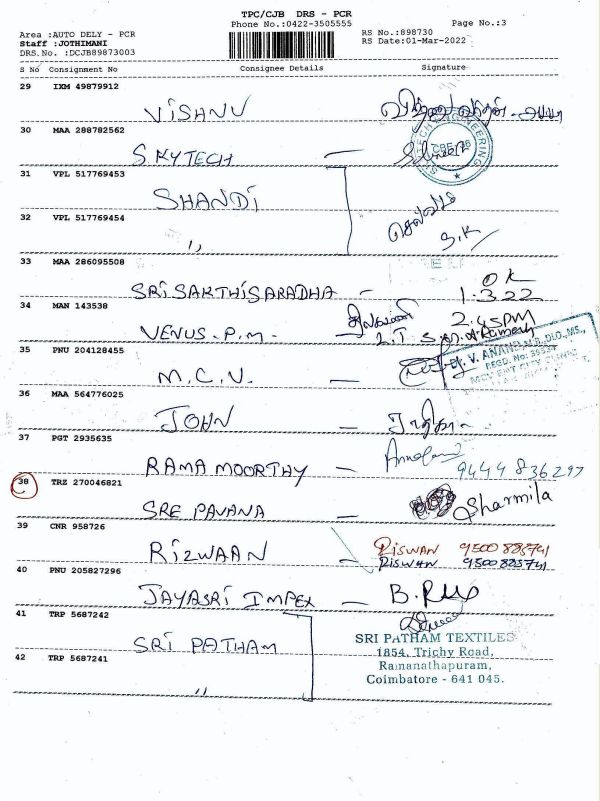 TPC/CJB DRS - PCR
Phone No.:0422-3505555
Page No.:3
Area :AUTO DELY - PCR
RS No.:898730
Staff :JOTHIMANI
RS Date:01-Mar-2022
DRS.No. :DCJB89873003
S No Consignment No Consignee Details Signature
29 IXM 49879912
VISHNU
30 MAA 288782562
SKYTECH
31 VPL 517769453
SHANDI
செல்வி
32 VPL 517769454
〃 S.K
33 MAA 286095508
OK
SRI SAKTHI SARADHA - 1.3.22
34 MAN 143538
2.45PM
VENUS. P.M. -
35 PNU 204128455
Dr. V. ANAND
M.C.V. -
36 MAA 564776025
JOHN -
37 PGT 2935635
RAMA MOORTHY - 9444836297
38 TRZ 270046821
SRE PAVANA - Sharmila
39 CNR 958726
RIZWAAN RISWAN 9500885741
RISWAN 9500885741
40 PNU 205827296
JAYASRI IMPEX -
41 TRP 5687242
SRI PATHAM
SRI PATHAM TEXTILES
1854, Trichy Road,
42 TRP 5687241
Ramanathapuram,
Coimbatore - 641 045.
〃